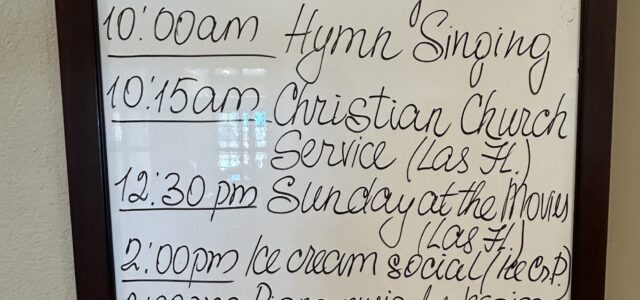 10:00am Hymn Singing
10:15am Christian Church
Service (Las Fl.)
12:30pm Sunday at the Movies
(Las Fl.)
2:00pm Ice cream social (Ice Cr. P.)
Piano music